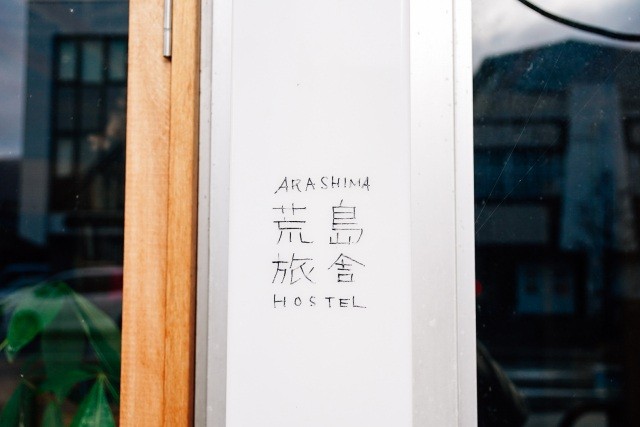 ARASHIMA
荒島
旅舎
HOSTEL